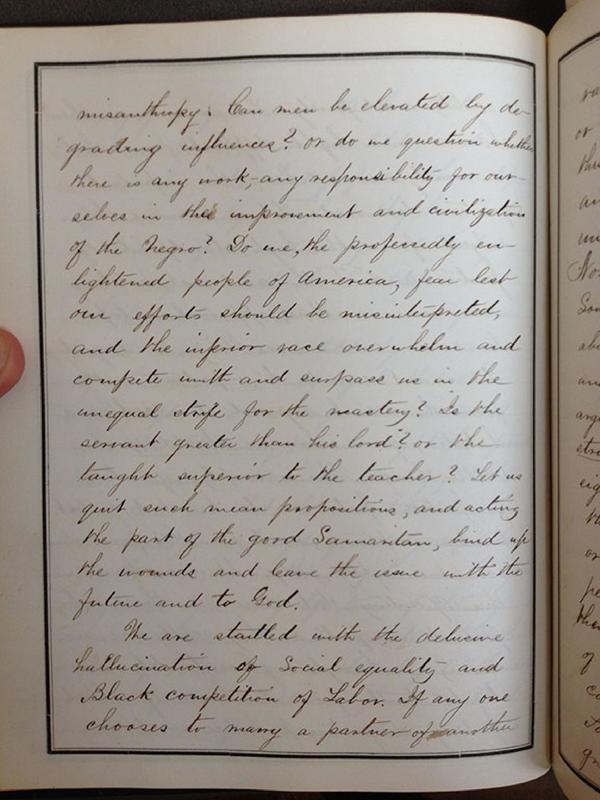 misanthropy; Can men be elevated by de-
grading influences? or do we question whether
there is any work, any responsibility for our-
selves in the improvement and civilization
of the Negro? Do we, the professedly en-
lightened people of America, fear lest
our efforts should be misinterpreted,
and the inferior race overwhelm and
compete with and surpass us in the
unequal strife for the mastery? Is the
servant greater than his lord? or the
taught superior to the teacher? Let us
quit such mean propositions, and acting
the part of the good Samaritan, bind up
the wounds and leave the issue with the
future and to God.
We are startled with the delusive
hallucination of Social equality and
Black competition of Labor. If any one
chooses to marry a partner of another